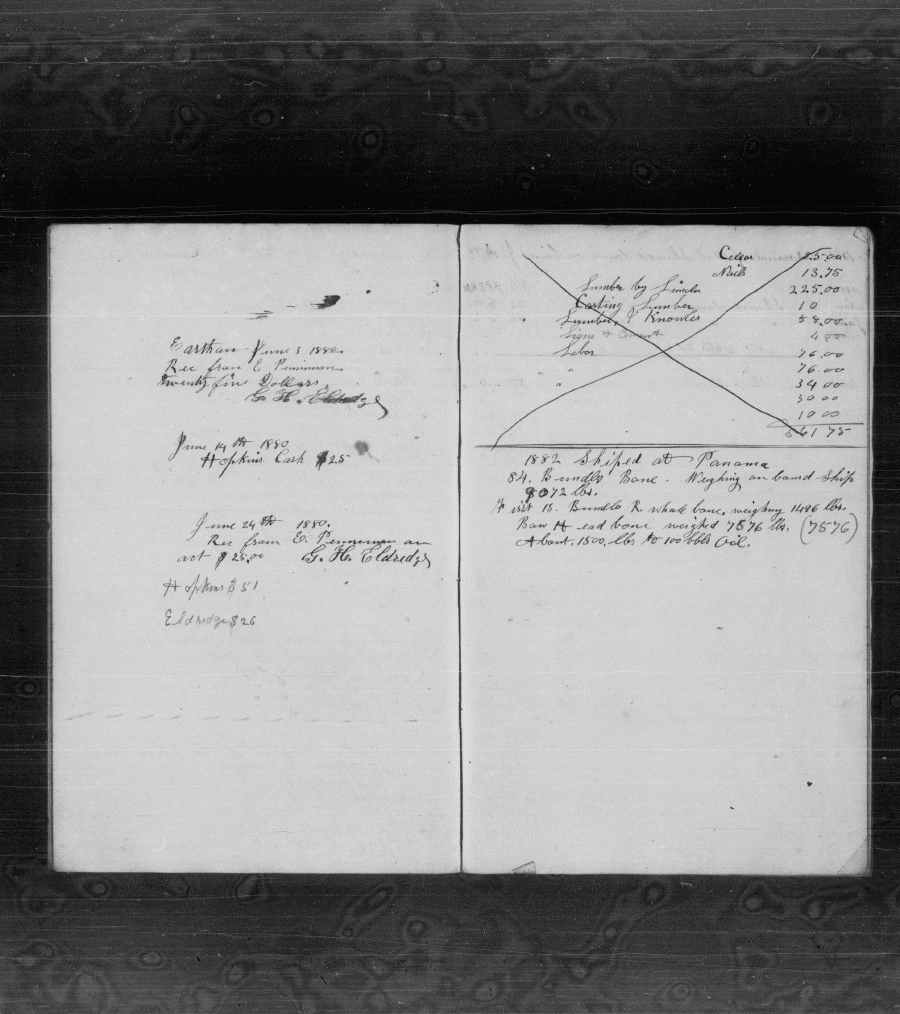 Eastham June 3 1880.
Rec from E Penniman
twenty five Dollars
G. H. Eldredge
June 14th 1880
Hopkins Cash $25
June 24th 1880.
Rec from E. Penniman on
act $25.00 G. H. Eldredge
Hopkins $51
Eldredge $26
Cellar 25.00
Nails 13.75
Lumber by Lincoln 225.00
Carting Lumber 10
Lumber, Knowles 58.00
& Cement 4 80
Labor 76.00
" 76.00
" 34 00
30 00
10 00
561 75
1882 Shiped at Panama
84. Bundls Bone. Weighing on board Ship
9072 lbs.
First 15. Bundle R. whale bone, weighing 1496 lbs.
Bow Head bone weighed 7576 lbs. (7576)
About. 1500. lbs to 100 bbls Oil.